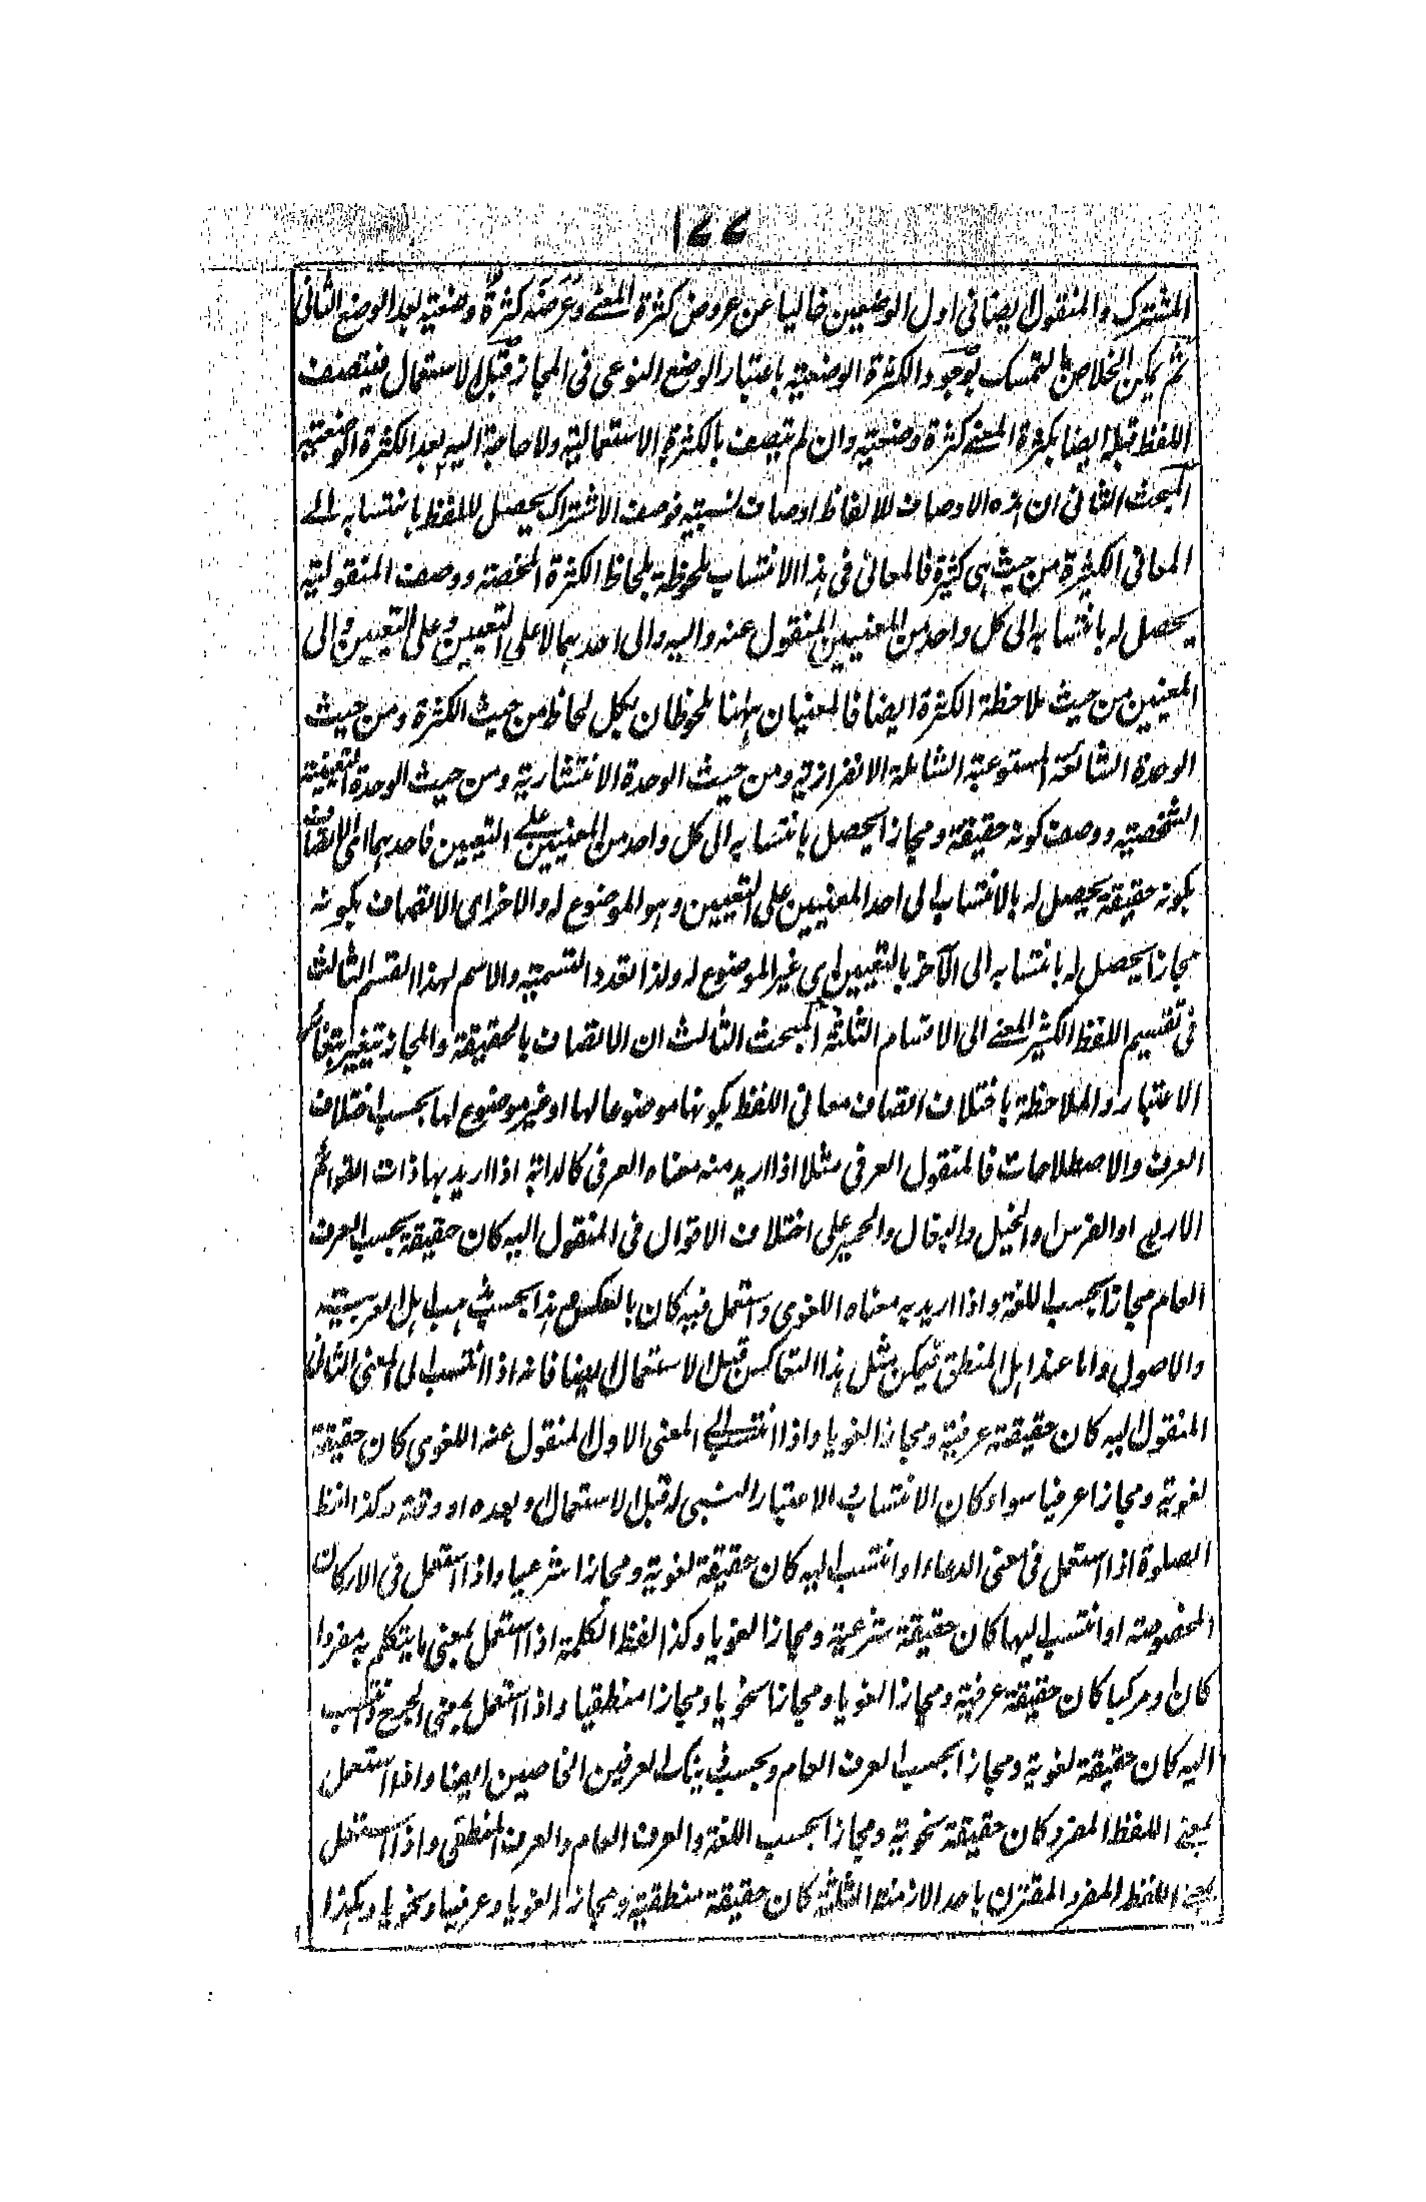 ١٧٧
المشترك والمنقول ايضا فى اول الوضعين خاليا عن عروض كثرة المعنے وعرضه كثرة وضعية بعد الوضع الثانى
ثم يمكن الخلاص بالتمسك بوجود الكثرة الوضعية باعتبار الوضع النوعى فى المجاز قبل الاستعمال فيتصف
اللفظ قبله ايضا بكثرة المعنے كثرة وضعية وان لم يتصف بالكثرة الاستعمالية ولا حاجة اليه بعد الكثرة الوضعية
المبحث الثانى ان هذه الاوصاف للالفاظ اوصاف نسبية فوصف الاشتراك يحصل للفظ بانتسابه الے
المعانى الكثيرة من حيث هى كثيرة فالمعانى فى هذا الانتساب ملحوظة بلحاظ الكثرة المحضة ووصف المنقولية
يحصل له بانتسابه الى كل واحد من المعنيين المنقول عنه واليه والى احدهما لا على التعيين وعلى التعيين والى
المعنيين من حيث ملاحظة الكثرة ايضا فالمعنيان ههنا ملحوظان بكل لحاظ من حيث الكثرة ومن حيث
الوحدة الشائعة المستوعبة الشاملة الانفرازية ومن حيث الوحدة الانتشارية ومن حيث الوحدة التعينية
الشخصية ووصف كونه حقيقة ومجازا يحصل بانتسابه الى كل واحد من المعنيين علے التعيين فاحدهما اى الاتصاف
بكونه حقيقة يحصل له بالانتساب الى احد المعنيين على التعيين وهو الموضوع له والاخر اى الاتصاف بكونه
مجازا يحصل له بانتسابه الى الآخر بالتعيين اى غير الموضوع له ولذا تعدد التسمية والاسم لهذا القسم الثالث
فى تقسيم اللفظ الكثير المعنے الى الاقسام الثلثة المبحث الثالث ان الاتصاف بالحقيقة والمجاز يتغير بتغاير
الاعتبار والملاحظة باختلاف اتصاف معانى اللفظ بكونها موضوعا لها او غير موضوع لها بحسب اختلاف
العرف والاصطلاحات فالمنقول العرفى مثلا اذا اريد منه معناه العرفى كالدابة اذا اريد بها ذات القوائم
الاربع او الفرس او الخيل والبغال والحمير على اختلاف الاقوال فى المنقول اليه كان حقيقة بحسب العرف
العام مجازا بحسب اللغة واذا اريد به معناه اللغوى واستعمل فيه كان بالعكس هذا بحسب مذهب اهل العربية
والاصول واما عند اهل المنطق فيمكن مثل هذا التعاكس قبل الاستعمال ايضا فانه اذا انتسب الى المعنى الثانى
المنقول اليه كان حقيقة عرفية ومجازا لغويا واذا انتسب الے المعنى الاول المنقول عنه اللغوى كان حقيقة
لغوية ومجازا عرفيا سواء كان الانتساب والاعتبار النسبى له قبل الاستعمال وبعده او وقته وكذا لفظ
الصلوة اذا استعمل فى معنى الدعاء او انتسب اليه كان حقيقة لغوية ومجازا شرعيا واذا استعمل فى الاركان
المخصوصة او انتسب اليها كان حقيقة شرعية ومجازا لغويا وكذا لفظ الكلمة اذا استعمل بمعنى ما يتكلم به مفردا
كان او مركبا كان حقيقة عرفية ومجازا لغويا ومجازا نحويا ومجازا منطقيا واذا استعمل بمعنى الجرح وانتسب
اليه كان حقيقة لغوية ومجازا بحسب العرف العام وبحسب ذينك العرفين الخاصين ايضا واذا استعمل
بمعنے اللفظ المفرد كان حقيقة نحوية ومجازا بحسب اللغة والعرف العام والعرف المنطقى واذا استعمل
بمعنے اللفظ المفرد المقترن باحد الازمنة الثلثة كان حقيقة منطقية ومجازا لغويا وعرفيا ونحويا وهكذا